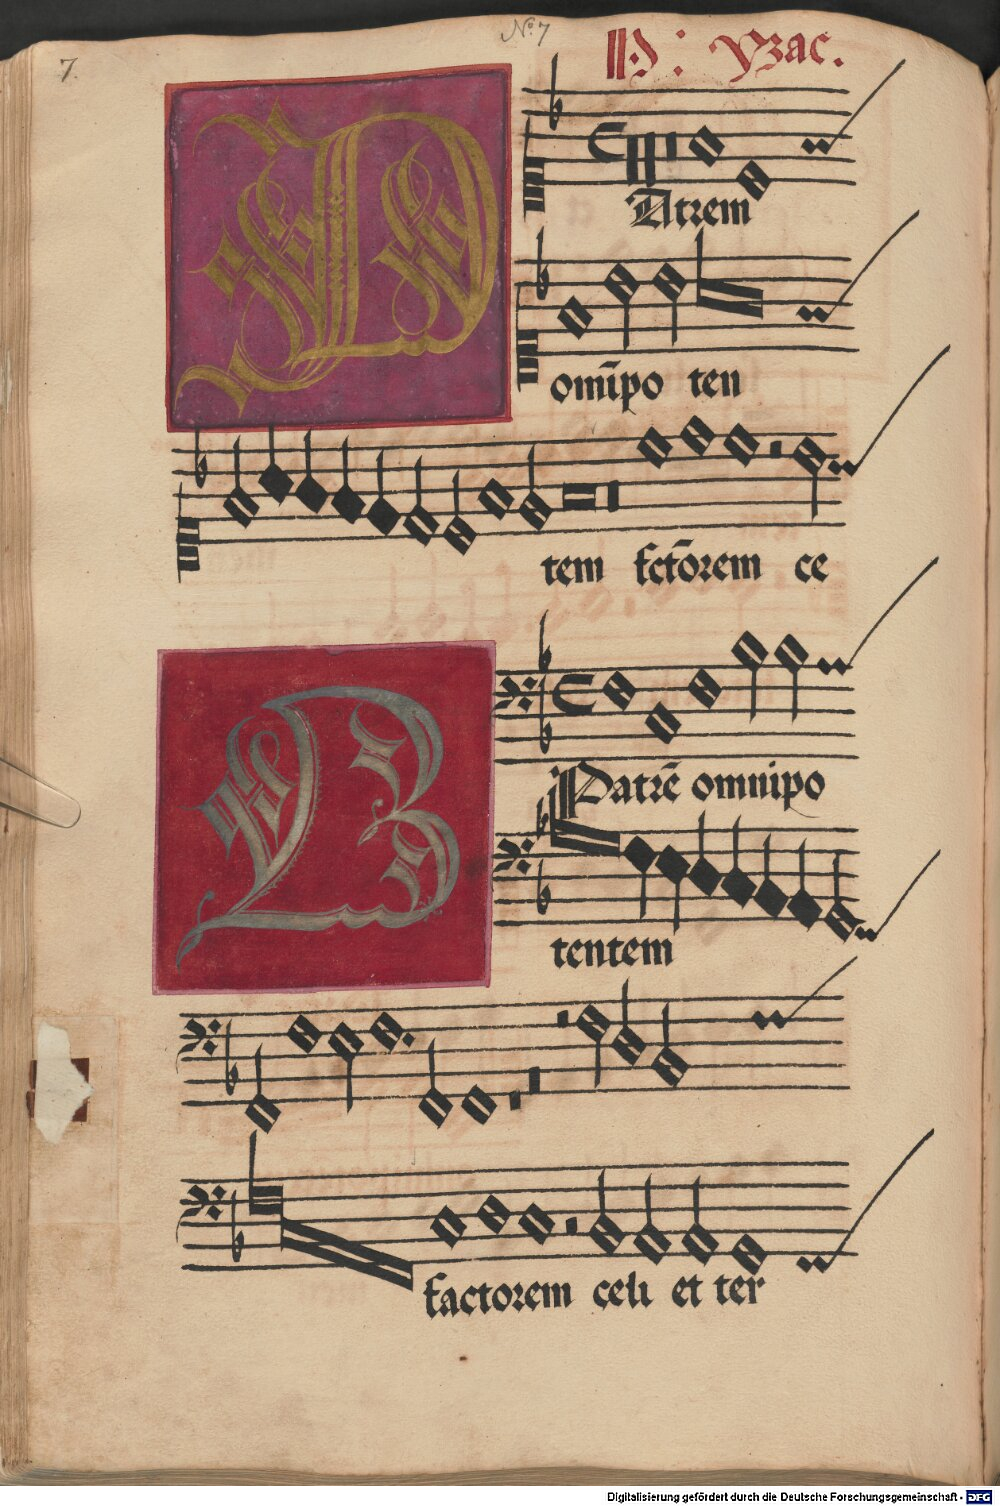 No 7
7.
H: yzac.
PAtrem
omīpo ten
tem fctōrem ce
Patrē omnipo
tentem
factorem celi et ter
Digitalisierung gefördert durch die Deutsche Forschungsgemeinschaft - DFG